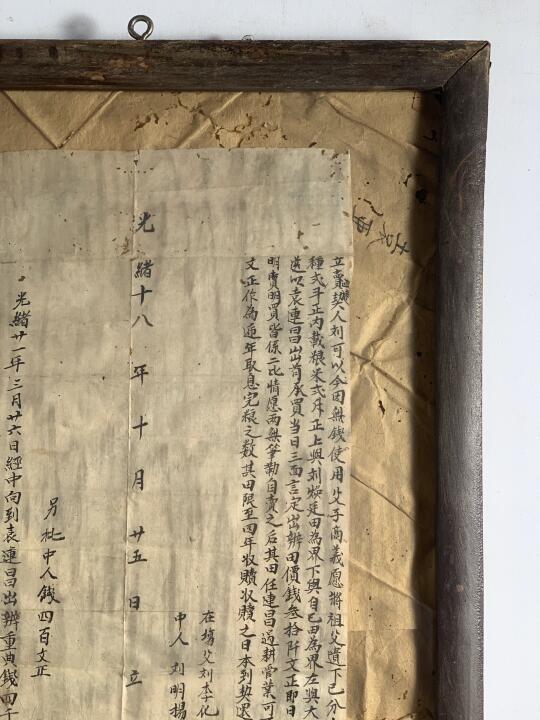 立賣契人刘可以今因無錢使用父子商義愿將祖父遺下已分
種弍斗正内載粮米弍升正上與刘 廷田為界下與自己田為界左與大
送以袁連昌出首承買當日三面言定出辦田價錢叁拾阡文正即日
明賣明買皆係二比情愿两無筭勒自賣之后其田任連昌過耕管業可
文正作為遞年取息完粮之数其田限至四年收贖收贖之日本到契退
在塲父刘本化
中人刘明揚
光緒十八年十月廿五日立
另批中人錢四百文正
光緒廿一年三月廿六日經中向到袁連昌出辦重典錢四千